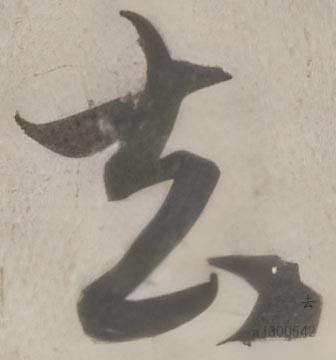 去
去
a1300542